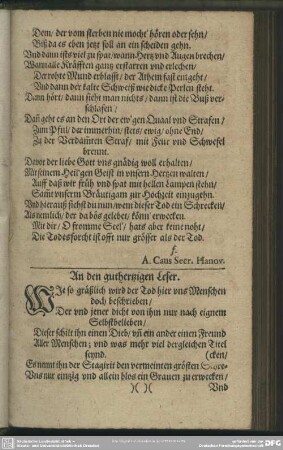 Dem/ der vom sterben nie mocht' hören oder sehn/
Biß da es eben jetzt soll an ein scheiden gehn.
Vnd dann ists viel zu spat/ wann Hertz vnd Augen brechen/
Wann alle Kräfften gantz erstarren vnd erlechen/
Der rohte Mund erblasst/ der Athem fast eingeht/
Vnd dann der kalte Schweiß wie dicke Perlen steht.
Dann hört/ dann sieht man nichts/ dann ist die Buß ver-
schlafen/
Dañ geht es an den Ort der ew'gen Quaal vnd Strafen/
Zum Pful/ dar immerhin/ stets/ ewig/ ohne End/
Zu der Verdaṁten Straf/ mit Feur vnd Schwefel
brennt.
Davor der liebe Gott vns gnädig woll erhalten/
Mit seinem Heil'gen Geist in vnsern Hertzen walten/
Auff daß wir früh vnd spat mit hellen Lampen stehn/
Saṁt vnserm Bräutigam zur Hochzeit einzugehn.
Vnd hierauß siehst du nun/ wem dieser Tod ein Schrecken/
Als nemlich/ der da bös gelebet/ könn' erwecken.
Mit dir/ O fromme Seel'/ hats aber keine noht/
Die Todesforcht ist offt nur grösser als der Tod.
f.
A. Caus Secr. Hanov.
An den guthertzigen Leser.
WIe so gräßlich wird der Tod hier vns Menschen
doch beschrieben/
Der vnd jener dicht von ihm nur nach eignem
Selbstbelieben/
Dieser schilt ihn einen Dieb/ vñ ein ander einen Freund
Aller Menschen; vnd was mehr viel dergleichen Titel
seynd. (cken/
Es nennt ihn der Stagirit den vermeinten grösten
Vns nur eintzig vnd allein blos ein Grauen zu erwecken/
)( )( Vnd